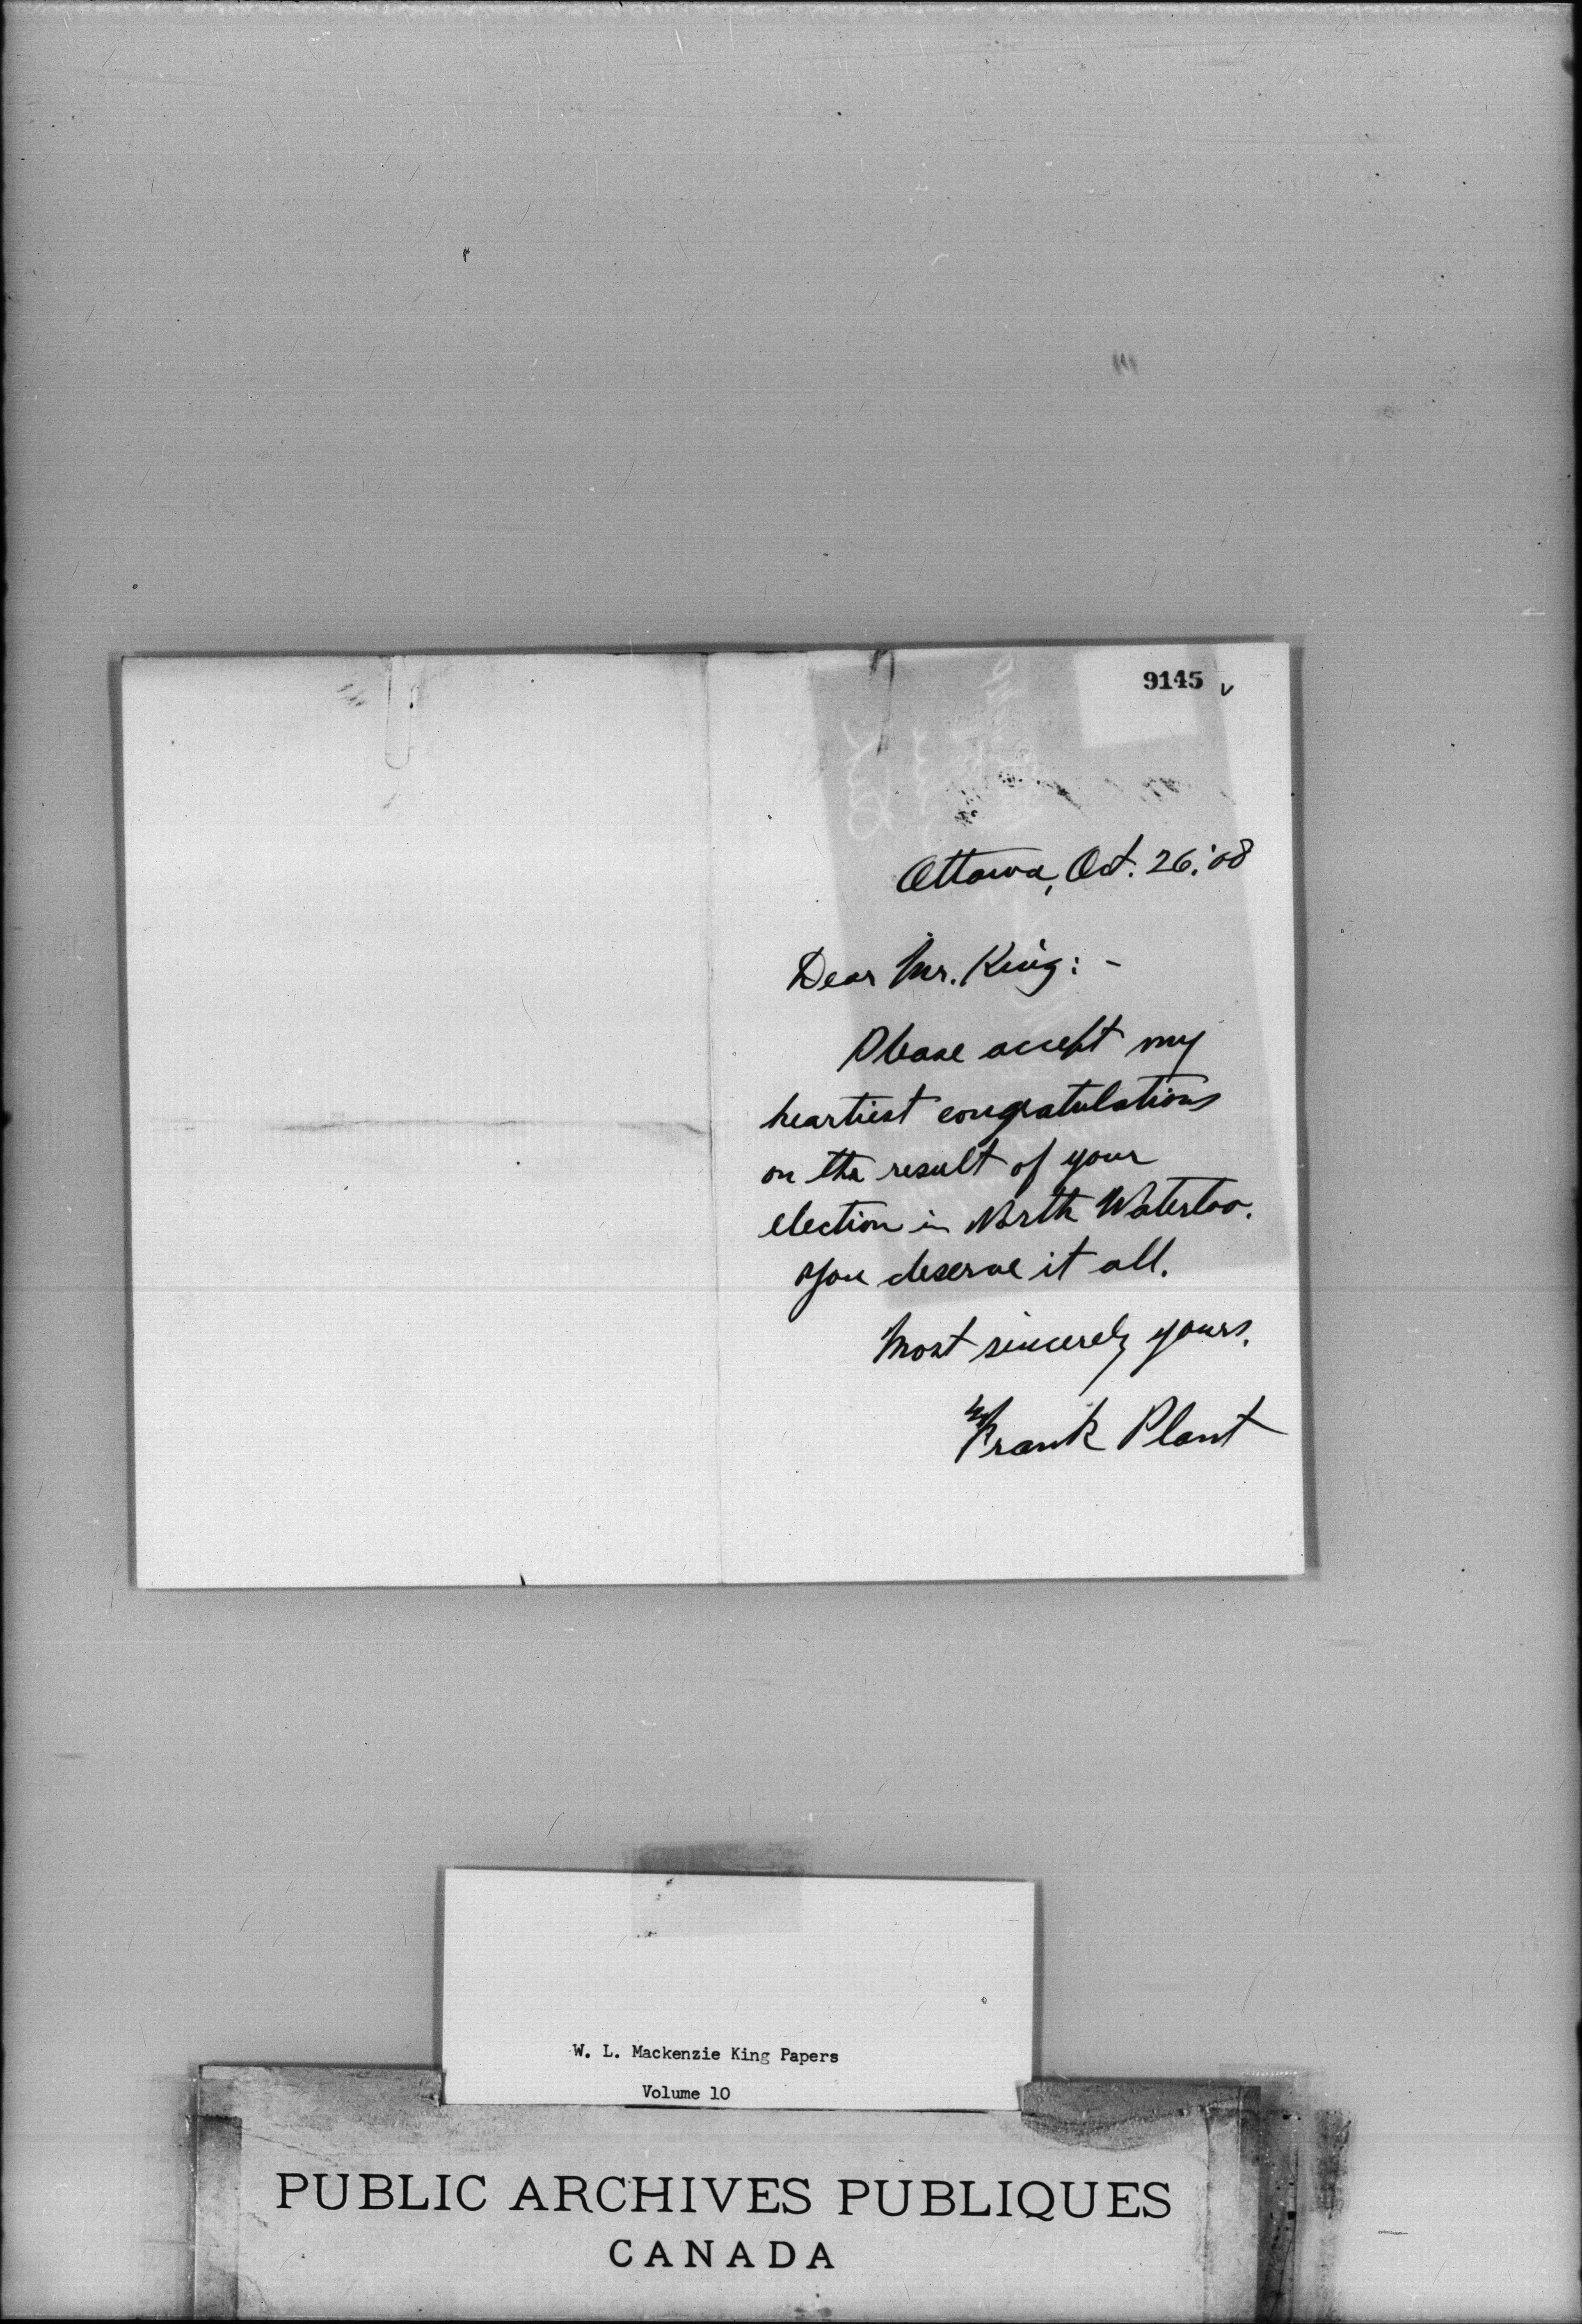 9145
Ottawa, Oct. 26. '08
Dear Mr. King: -
Please accept my
heartiest congratulations
on the result of your
election in North Waterloo.
You deserve it all.
Most sincerely yours,
Frank Plant
W. L. Mackenzie King Papers
Volume 10
PUBLIC ARCHIVES PUBLIQUES
CANADA